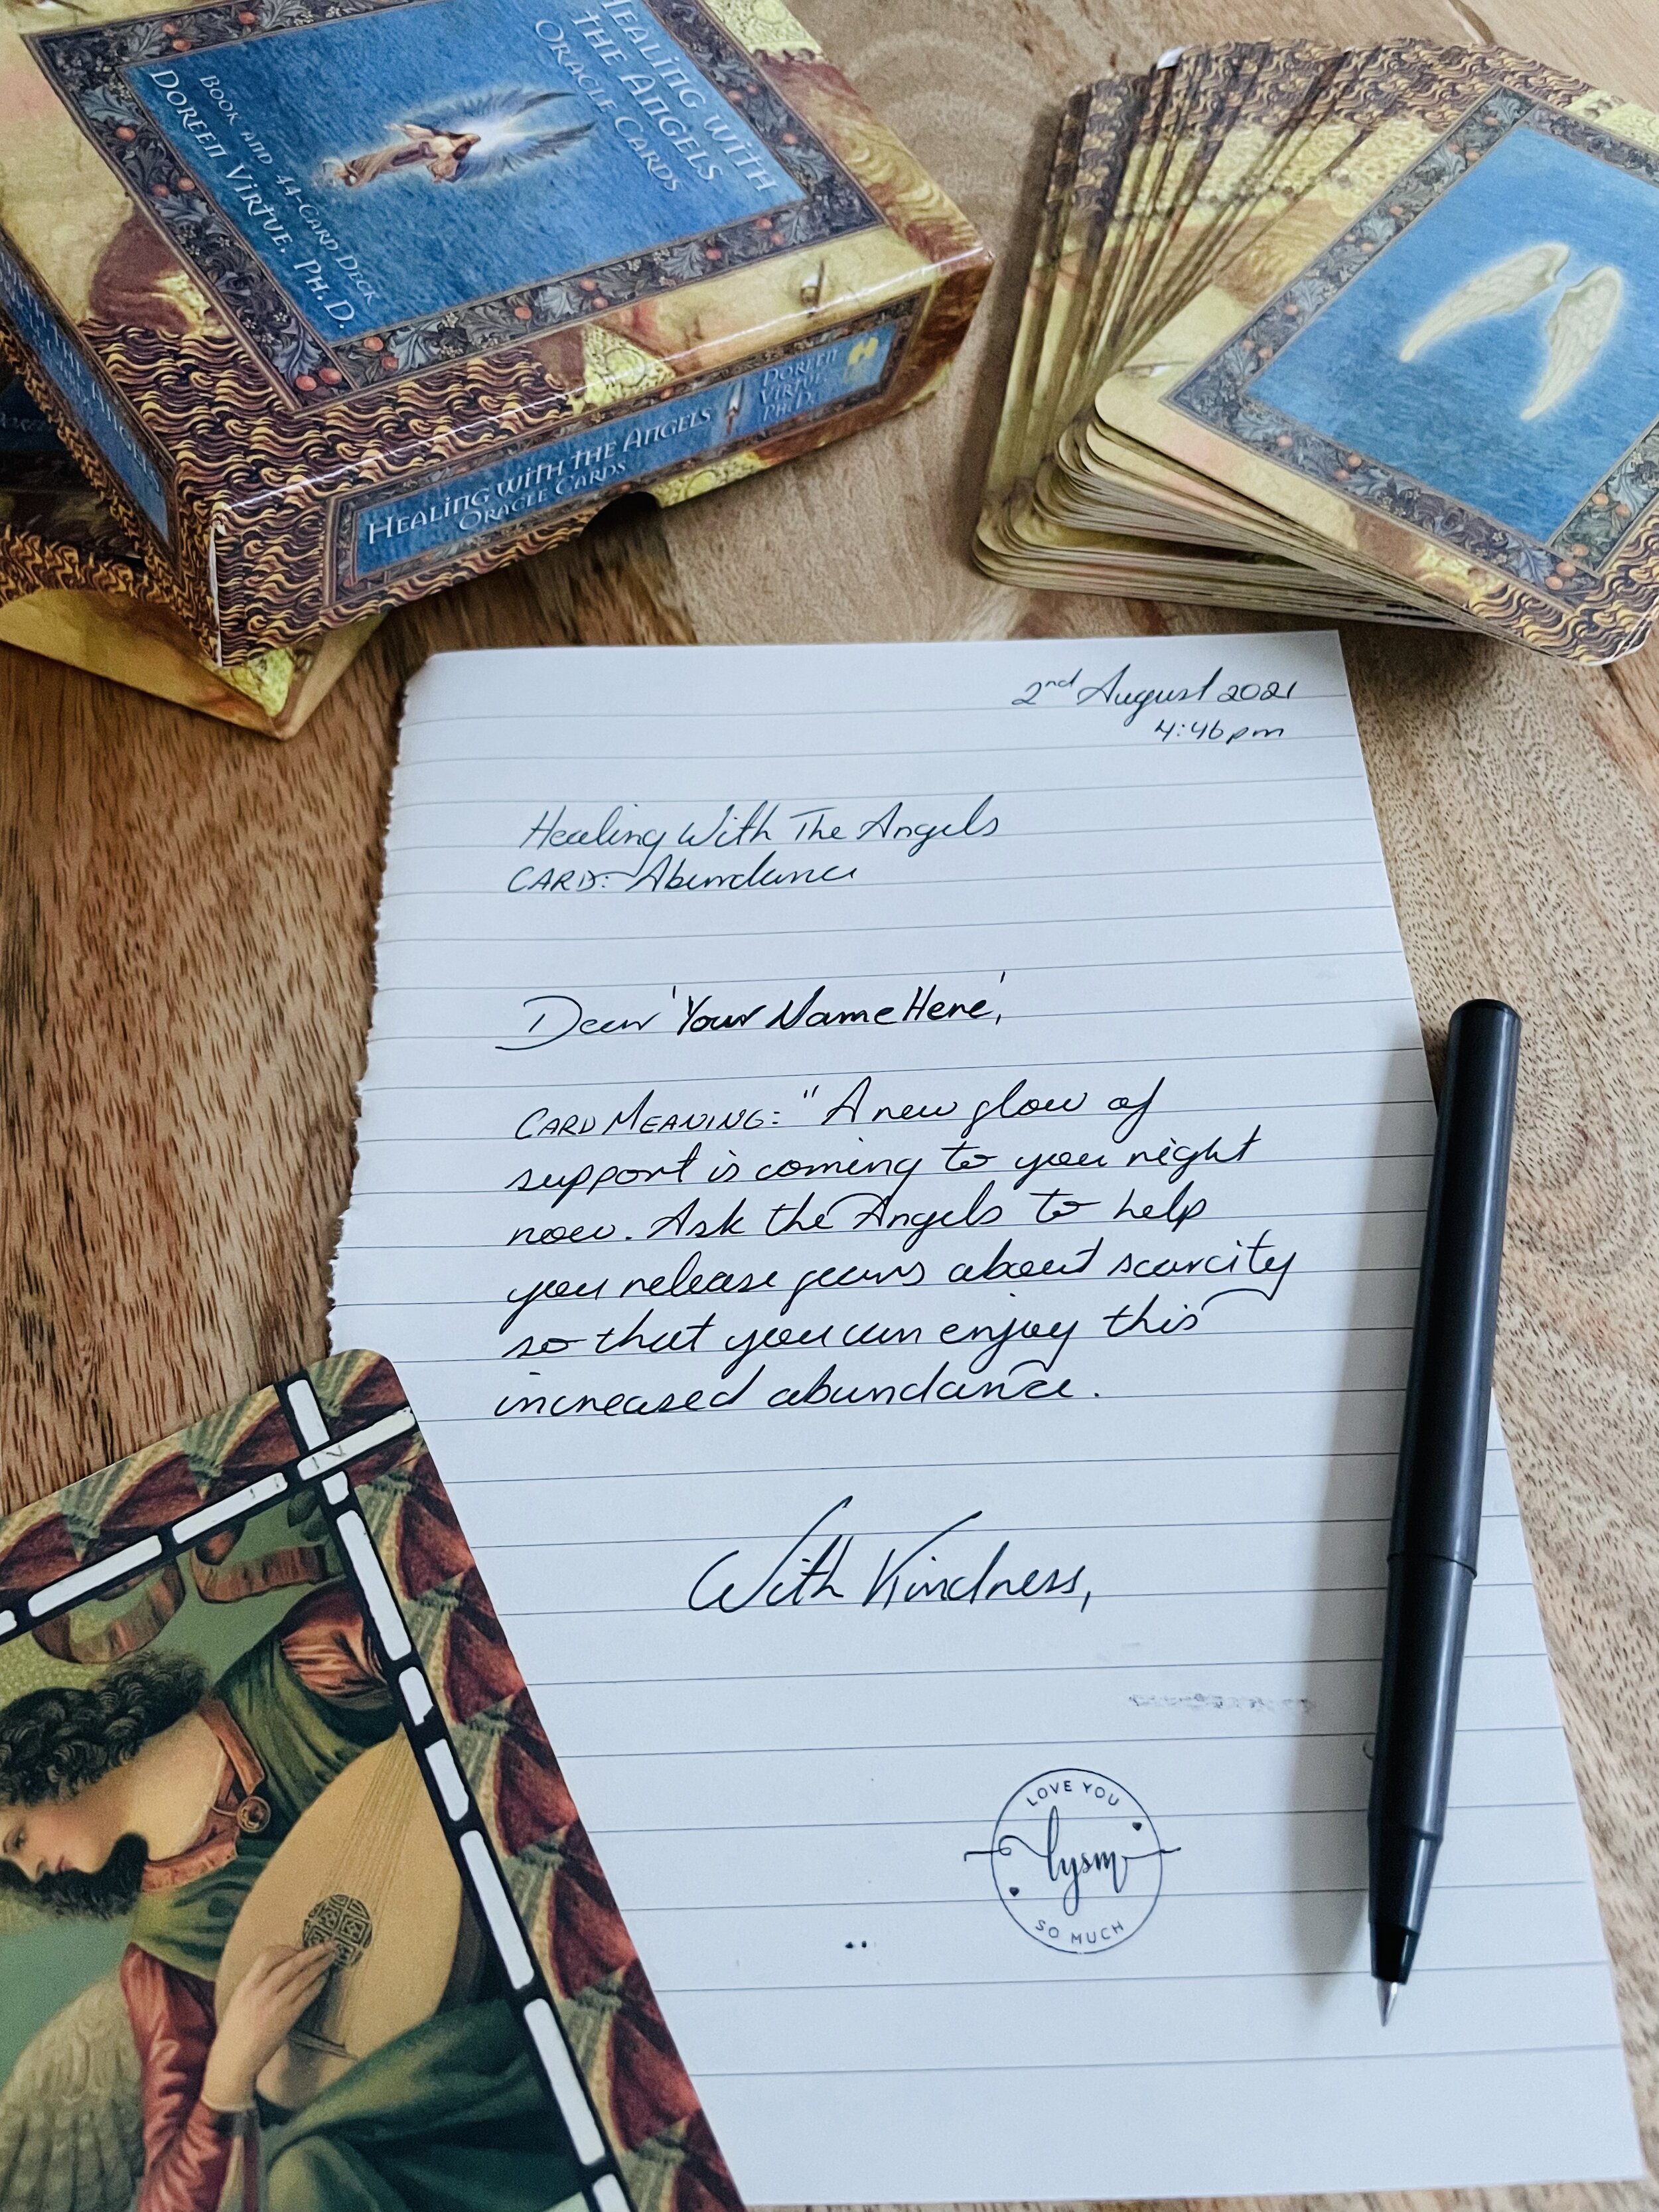 HEALING WITH
THE ANGELS
ORACLE CARDS
BOOK AND 44-CARD DECK
DOREEN VIRTUE, PH.D.
HEALING WITH THE ANGELS
ORACLE CARDS
DOREEN
VIRTUE,
PH.D.
2nd August 2021
4:46pm
Healing With The Angels
CARD: Abundance
Dear 'Your Name Here',
CARD MEANING: "A new glow of
support is coming to you right
now. Ask the Angels to help
you release fears about scarcity
so that you can enjoy this
increased abundance.
With Kindness,
LOVE YOU
lysm
SO MUCH